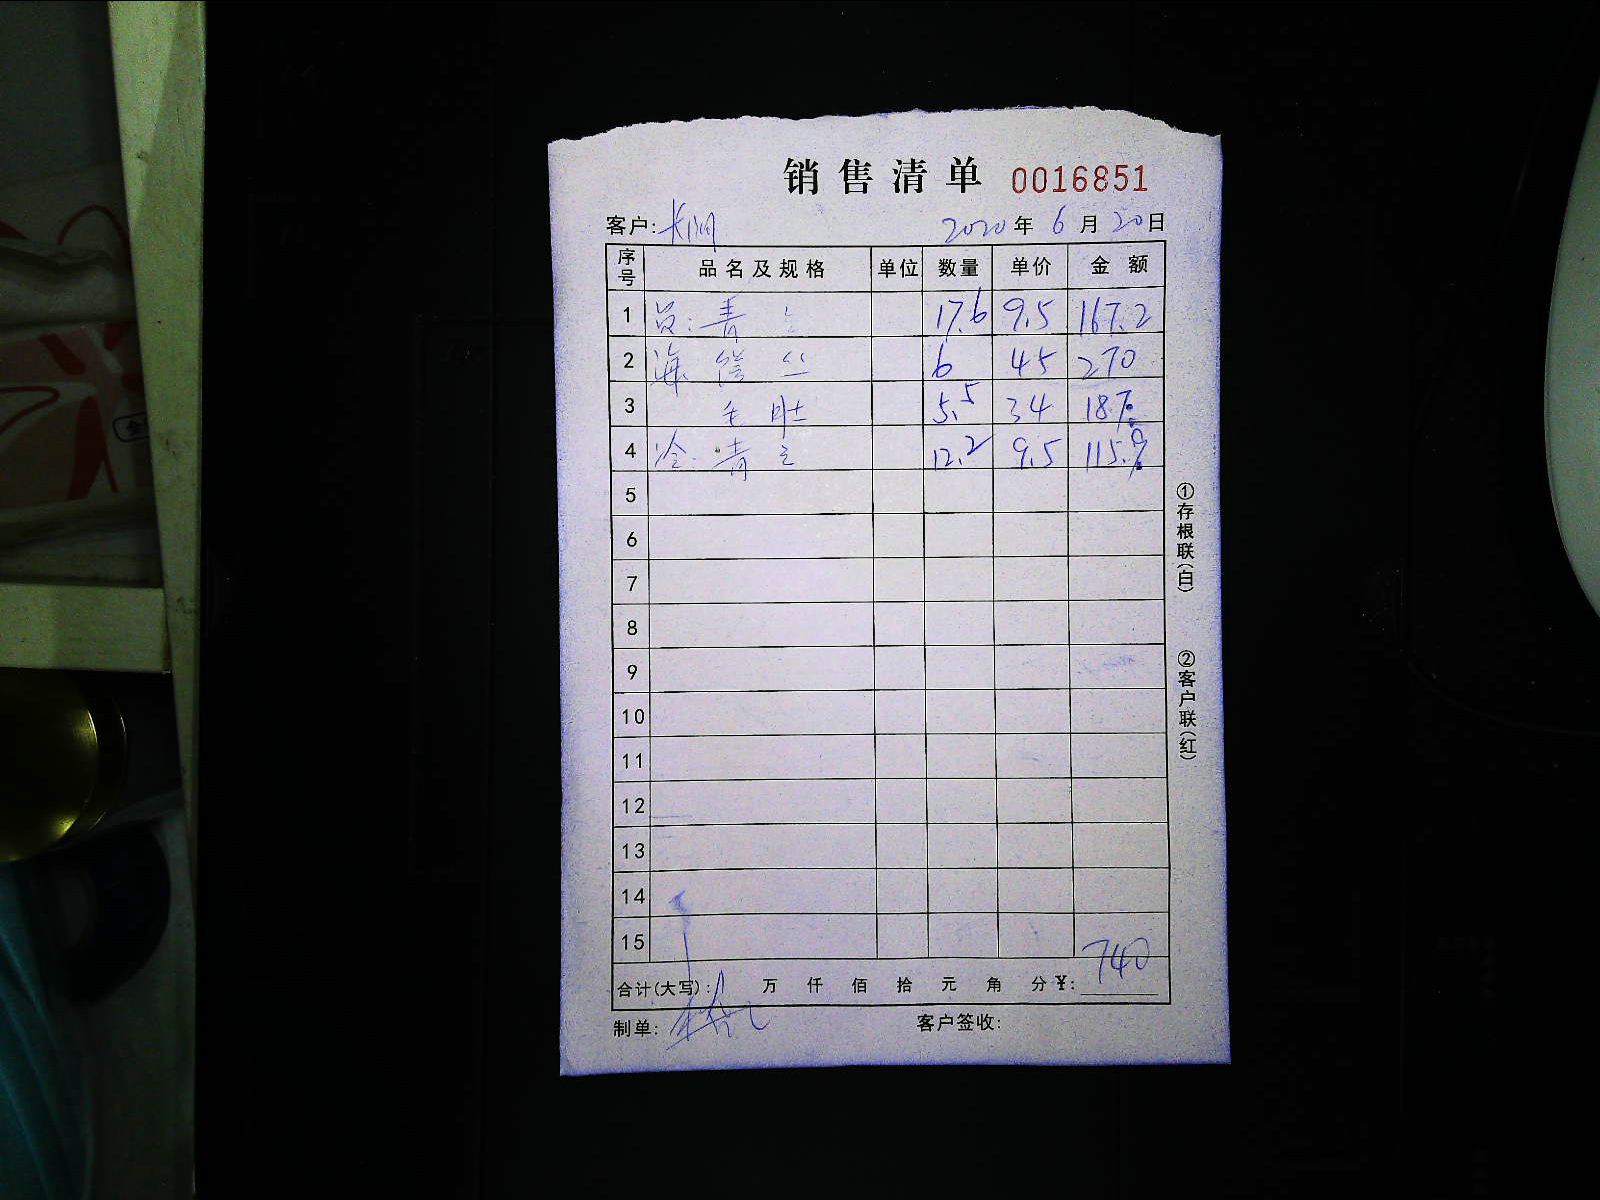 销售清单 0016851
客户: 2020年6月20日
序号 品名及规格 单位 数量 单价 金额
1 青 17.6 9.5 167.2
2 海 丝 6 45 270
3 毛肚 5.5 34 187
4 冷: 青 12.2 9.5 115.9
5
6
7
8
9
10
11
12
13
14
15
合计(大写): 万 仟 佰 拾 元 角 分 ¥: 740
制单: 客户签收:
①存根联(白)
②客户联(红)